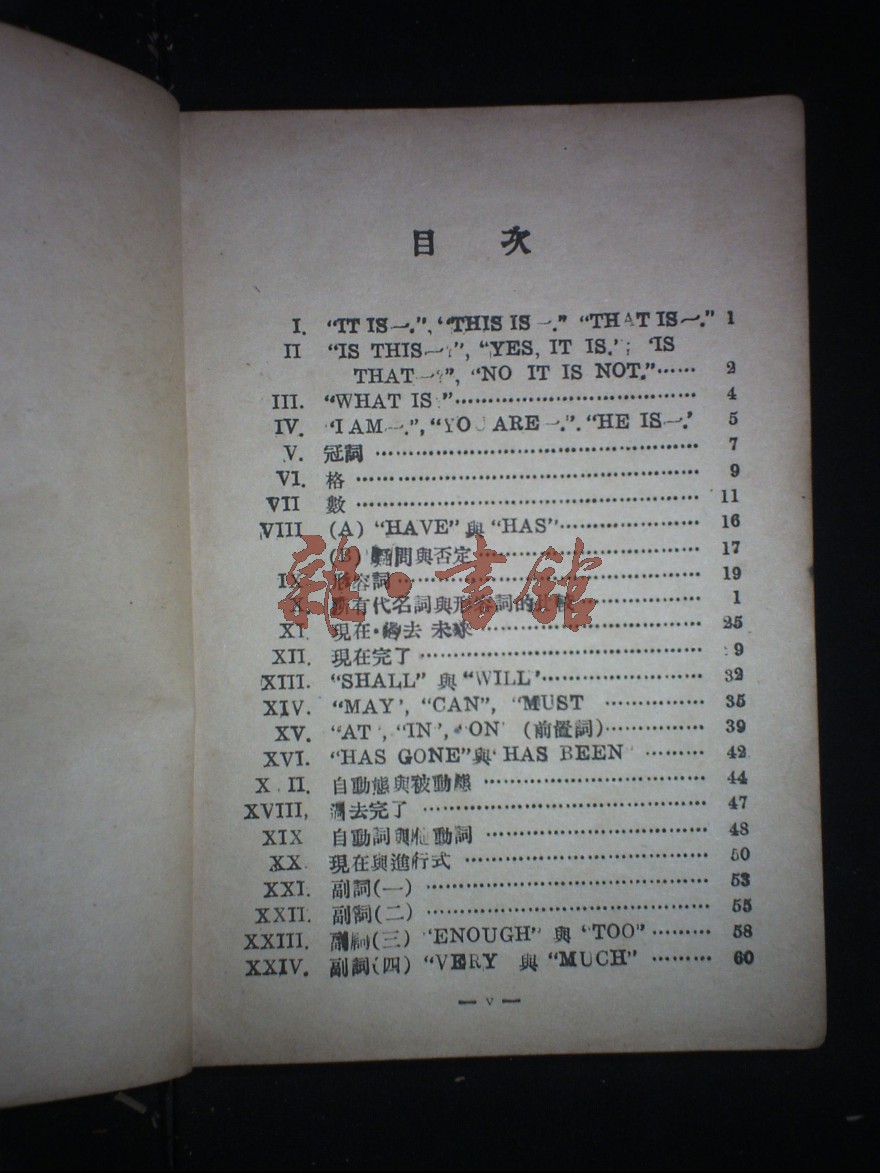 目 次
I. “IT IS～.”, “THIS IS～.” “THAT IS～.” 1
II “IS THIS～?”, “YES, IT IS.’; ‘IS
THAT～?”, “NO IT IS NOT.”…… 2
III. “WHAT IS ”………………………… 4
IV. ‘I AM～.”, “YOU ARE～.”. “HE IS～.’ 5
V. 冠詞 ………………………………… 7
VI. 格 ………………………………… 9
VII 數 ………………………………… 11
VIII (A) “HAVE” 與 “HAS”……………… 16
(B) 疑問與否定……………………… 17
IX 形容詞……………………………… 19
X. 所有代名詞與形容詞的 ………… 1
XI. 現在·過去 未來……………………… 25
XII. 現在完了…………………………… 9
XIII. “SHALL” 與 “WILL’……………… 32
XIV. “MAY’, “CAN”, “MUST ………… 35
XV. “AT’, “IN’, “ON’ (前置詞)………… 39
XVI. “HAS GONE”與‘HAS BEEN ……… 42
X II. 自動態與被動態 …………………… 44
XVIII, 過去完了 ………………………… 47
XIX 自動詞與他動詞 …………………… 48
XX. 現在與進行式 ……………………… 50
XXI. 副詞(一) ………………………… 53
XXII. 副詞(二) ………………………… 55
XXIII. 副詞(三) “ENOUGH” 與 ‘TOO” ……… 58
XXIV. 副詞(四) “VERY 與 “MUCH” ……… 60
— v —
雜·書館